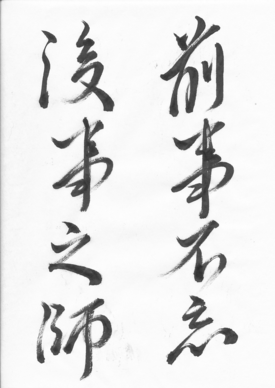 前事不忘
後事之師